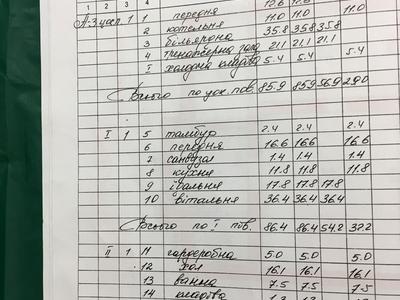 1 2 3 4
А-3 цок. 1 1 передня 11.0 11.0 11.0
2 котельня 35.8 35.8 35.8
3 більярдна
4 тренажерна зала 21.1 21.1 21.1
I холодна кладова 5.4 5.4 5.4
Всього по цок. пов. 85.9 85.9 56.9 29.0
I 1 5 тамбур 2.4 2.4 2.4
6 передня 16.6 16.6 16.6
7 санвузол 1.4 1.4 1.4
8 кухня 11.8 11.8 11.8
9 їдальня 17.8 17.8 17.8
10 вітальня 36.4 36.4 36.4
Всього по I пов. 86.4 86.4 54.2 32.2
II 1 11 гардеробна 5.0 5.0 5.0
12 хол 16.1 16.1 16.1
13 ванна 7.5 7.5 7.5
14 кладова